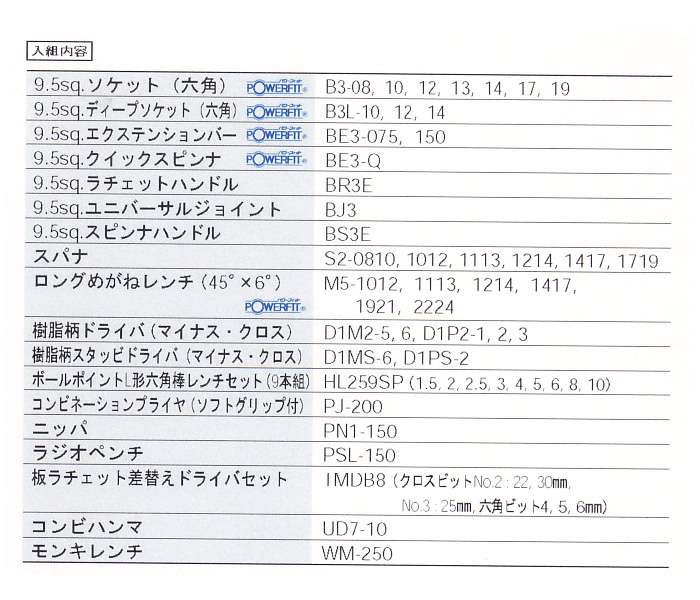 入組内容
9.5sq.ソケット（六角） パワーフィット POWERFIT® B3-08, 10, 12, 13, 14, 17, 19
9.5sq.ディープソケット（六角） パワーフィット POWERFIT® B3L-10, 12, 14
9.5sq.エクステンションバー パワーフィット POWERFIT® BE3-075, 150
9.5sq.クイックスピンナ パワーフィット POWERFIT® BE3-Q
9.5sq.ラチェットハンドル BR3E
9.5sq.ユニバーサルジョイント BJ3
9.5sq.スピンナハンドル BS3E
スパナ S2-0810, 1012, 1113, 1214, 1417, 1719
ロングめがねレンチ（45°×6°） M5-1012, 1113, 1214, 1417,
パワーフィット POWERFIT® 1921, 2224
樹脂柄ドライバ（マイナス・クロス） D1M2-5, 6, D1P2-1, 2, 3
樹脂柄スタッビドライバ（マイナス・クロス） D1MS-6, D1PS-2
ボールポイントL形六角棒レンチセット（9本組） HL259SP（1.5, 2, 2.5, 3, 4, 5, 6, 8, 10）
コンビネーションプライヤ（ソフトグリップ付） PJ-200
ニッパ PN1-150
ラジオペンチ PSL-150
板ラチェット差替えドライバセット TMDB8（クロスビットNo.2 : 22, 30㎜,
No.3 : 25㎜, 六角ビット4, 5, 6㎜）
コンビハンマ UD7-10
モンキレンチ WM-250